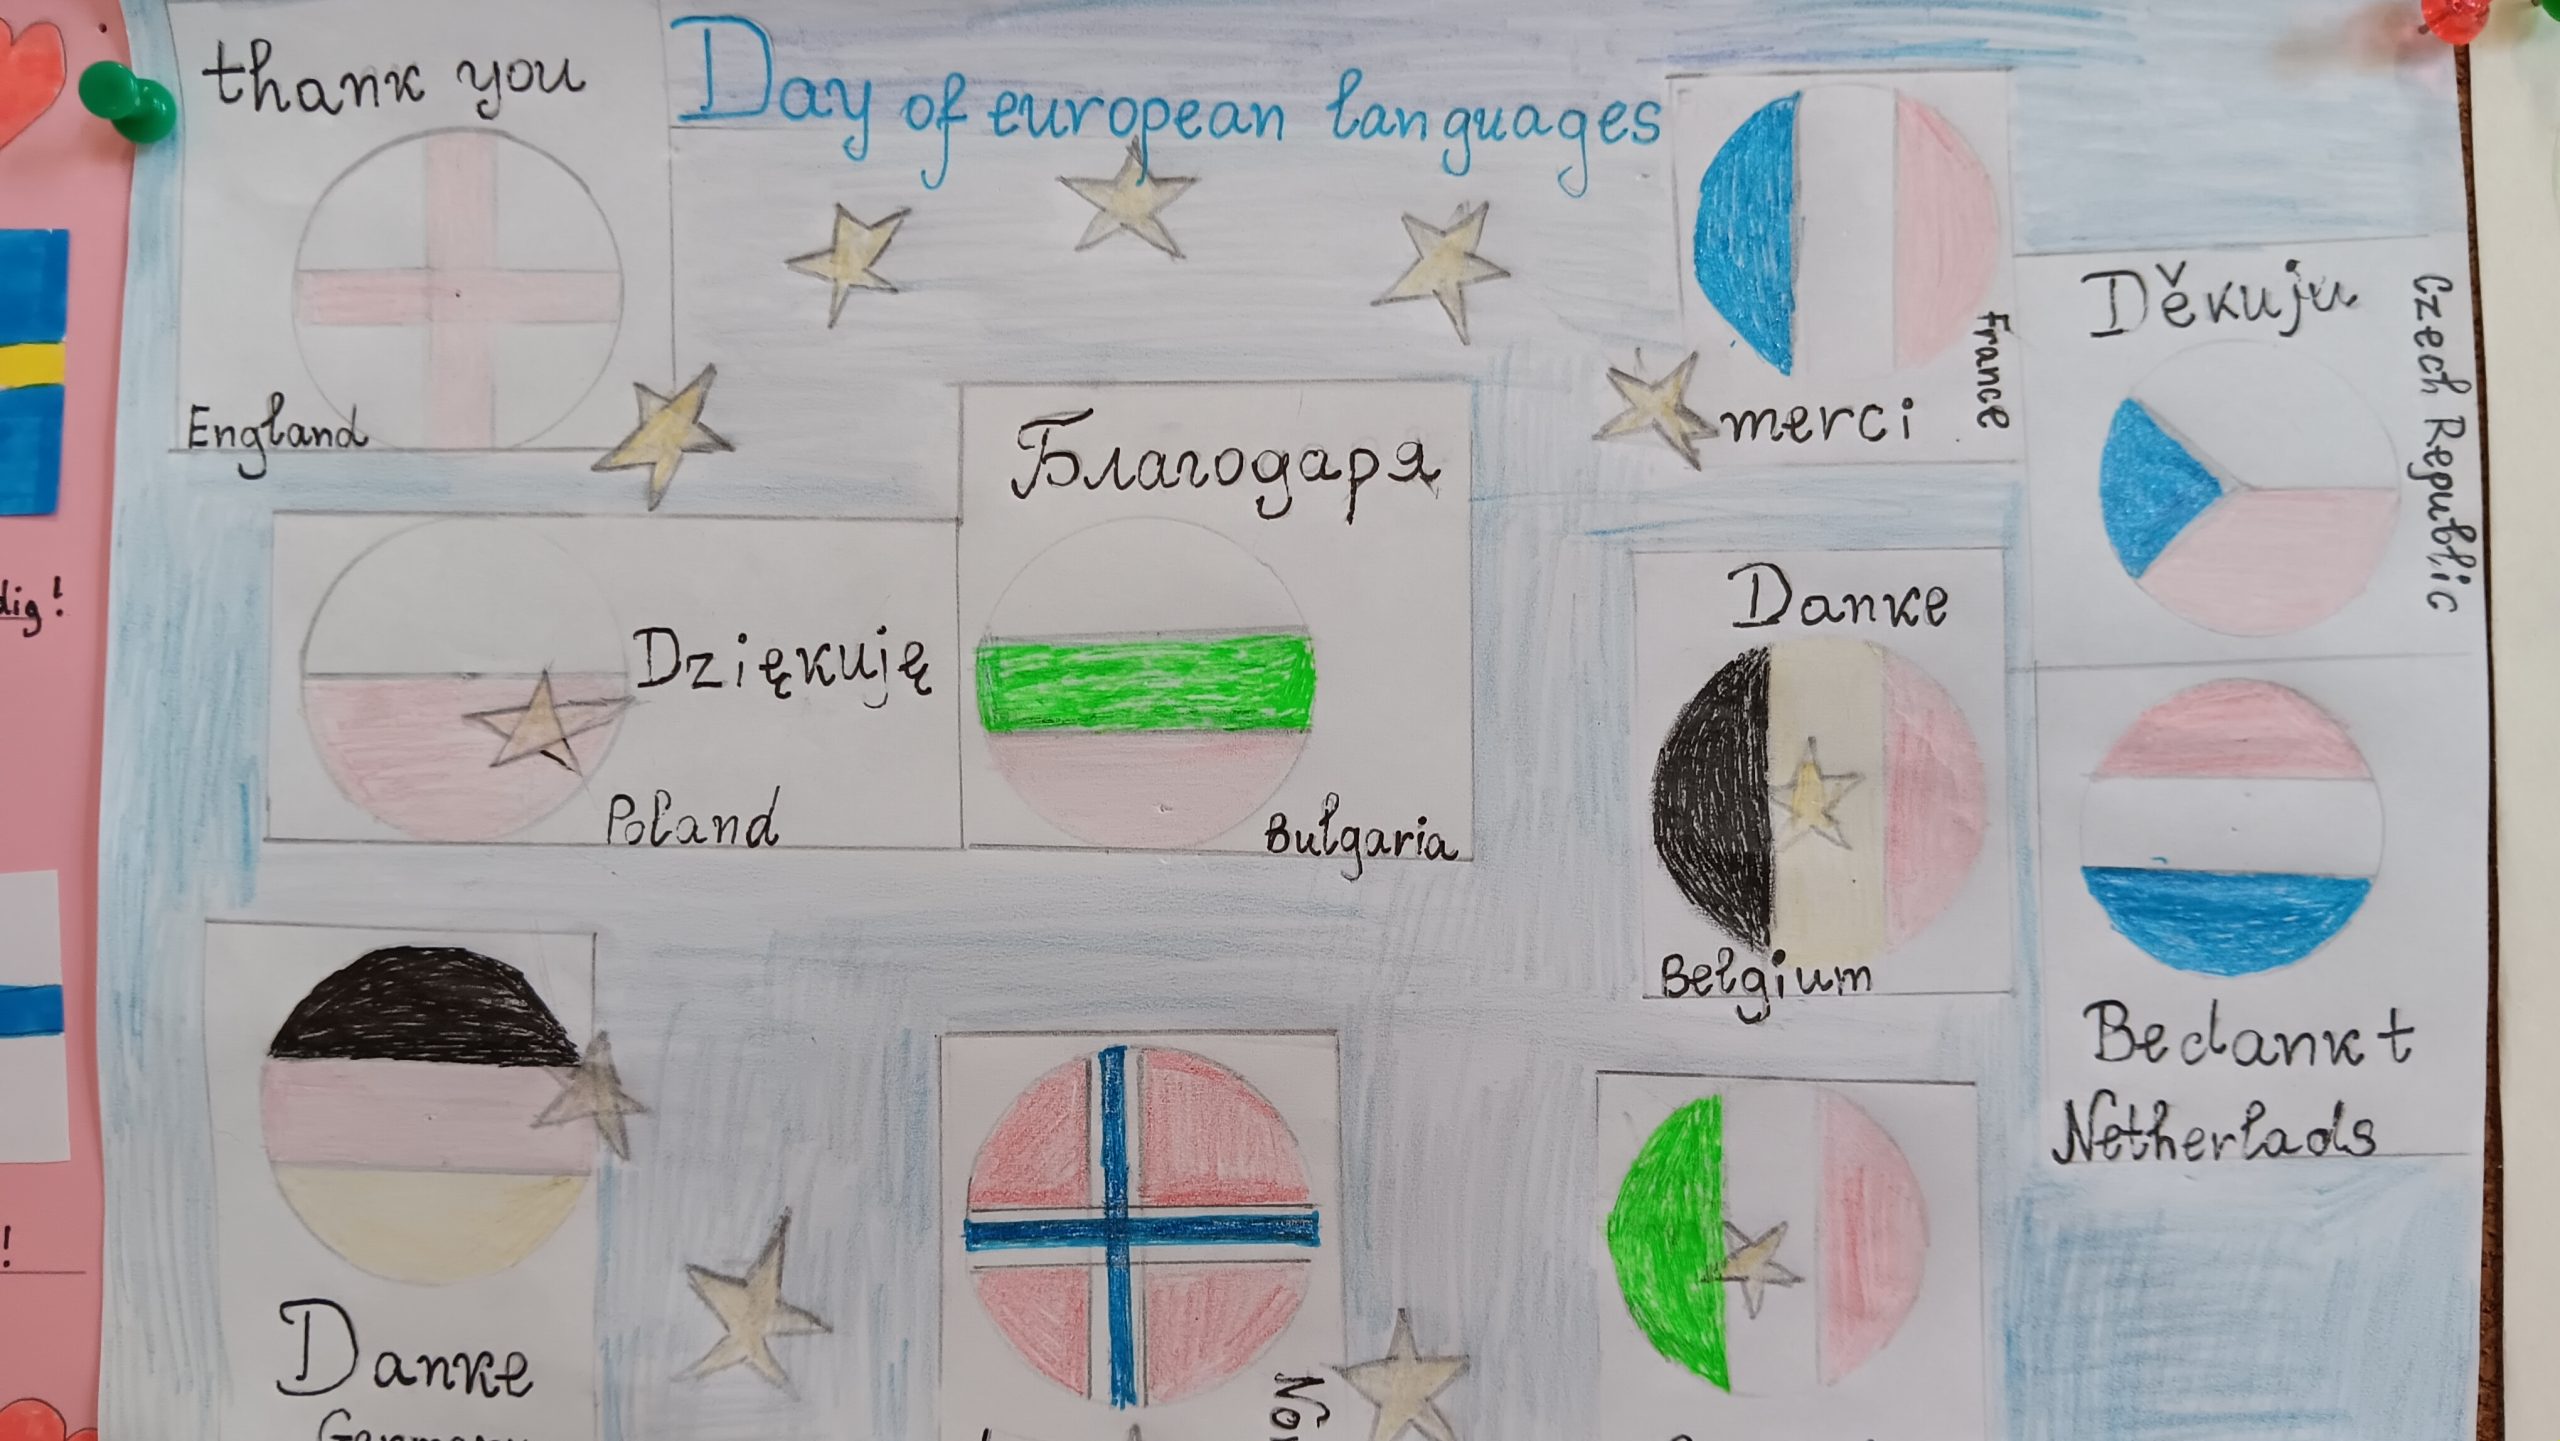 thank you
Day of european languages
England
France
merci
Děkuju
Czech Republic
Благодаря
Bulgaria
Dziękuję
Poland
Danke
Belgium
Bedankt
Netherlads
Danke
dig!
!